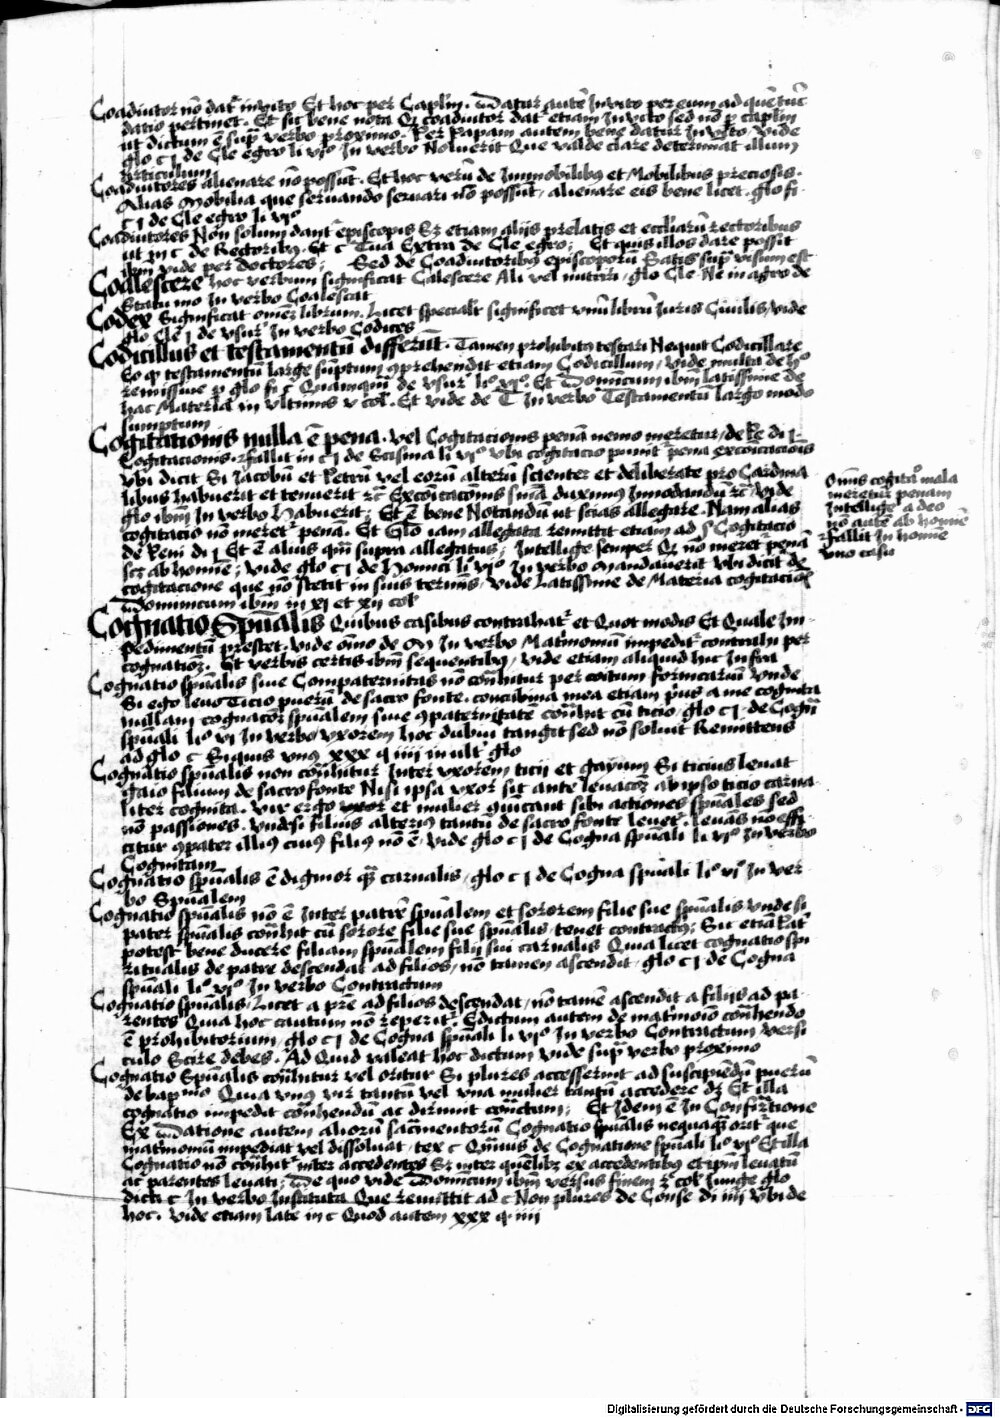 Coadiutor nō dat' invito Et hoc per Capl'm. Datur autē Invito per eum ad quē tūc
datio pertinet. Et sic bene nota Q coadiutor dat' etiam Invito sed nō p capl'm
ut dictum ē sup' verbo proximo. Per Papam autem bene datur Invito, Vide
glo c j de Cle egro li vjº In verbo Noluerit Que valde clare determinat illum
articulum
Coadiutores alienare nō possūt. Et hoc verū de Immobilibꝰ et Mobilibus preciosis.
Alias Mobilia que servando servari nō possūt, alienare eis bene licet. glo fi.
c j de Cle egro li vjº
Coadiutores Non solum dant' episcopis Sꝫ etiam alijs prelatis et eccl'iarū rectoribus
ut in c de Rectoribꝰ. Et c Tua Extra de Cle egro; Et quis illos dare possit
ibm vide per doctores; Sed de Coadiutoribꝰ episcoporū Satis sup' visum est
Coalescere hoc verbum significat Calescere Ali vel nutriri, glo Cle Ne in agro de
Statu mo In verbo Coalescat
Codex Significat omēꝫ librum. Licet specialr significet vnū librū Iuris Civilis, vide
glo Cle j de vsur' In verbo Codices
Codicillus et testamentū differūt. Tamen prohibitꝰ testari Nequit Codicillare
Eo qꝫ testamentū large sūptum ꝯprehendit etiam Codicillum, Vide multa de hº
remissive p glo fi c Quamquam de vsur' liº vjº. Et Dominicum ibm latissime de
hac Materia in vltimis v col'. Et vide de T In verbo Testamentū largo modo
sumptum
Cogitationis nulla ē pena. Vel Cogitacionis penā nemo meretur, de Pe di j.
Cogitacionis. ⁊ fallit in c j de Scisma li vjº vbi cogitacio punit' pena excōicacionis
Vbi dicit Si Iacobum et Petrū vel eorū alterū scienter et deliberate pro Cardina
libus habuerit et tenuerit ⁊c Excōicacōnis snīa duximꝰ Innodandū ⁊c Vide
glo ibm In verbo Habuerit; Et ē bene Notandū ut scias allegare. Nam alias
cogitacio nō meret' penā. Et Glo iam allegata remittit etiam ad § Cogitacio
de Peni di j Et ē alius qm supra allegatus; Intellige semper Q nō meret' penā
scꝫ ab homīe; Vide glo c j de Homici li vjº In verbo Mandaverit Vbi dicit de
cogitacione que nō stetit in suis terminis, Vide Latissime de Materia cogitaciois
Dominicum ibm in xj et xij col'
Omnis cogitatº mala
meretur penam
Intellige a deo
nō autē ab homīe
⁊ fallit In homīe
vno casu
Cognatio Spūalis Quibus casibus contrahat' et Quot modis Et Quale Im-
pedimentū prestet. Vide om̄o de M In verbo Matrimoniū impedit' contrahi per
cognationꝫ. Et verbis certis ibm sequentibꝰ, Vide etiam aliquid hic Infra
Cognatio spūalis sive Compaternitas nō cōtrahitur per coitum fornicariū Vnde
Si ego levo Ticio puerū de sacro fonte. concubina mea etiam prius a me cognita
nullam cognacōem spūalem sive ꝯpaternitatē contrahit cū ticio, glo c j. de Cogn
spūali liº vj In verbo, vxorem hoc dubiū tangit sed nō solvit Remittens
ad glo c Siquis vnꝰ xxx q iiij in ult' glo
Cognatio spūalis non contrahitur Inter vxorem ticii et gayum Si ticius levat
gaio filium de sacro fonte Nisi ipsa vxor sit ante levacōꝫ ab ipso ticio carna
liter cognita. Vir ergo vxor et mulier cōicant sibi actiones spūales sed
nō passiones. Vnde si filius alterius tantū de sacro fonte levet'. levans nō effi
citur ꝯpater illius cuiꝰ filiꝰ nō ē, Vide glo c j de Cogna spūali li vjº In verbo
Cognitam
Cognatio spūalis ē dignior q̄ carnalis, glo c j de Cogna spūali liº vjº In ver
bo Spūalem
Cognatio spūalis nō ē Inter patrē spūalem et sororem filie sue spūalis vnde si
pater spūalis contrahit cū sorore filie sue spūalis, tenet contractꝰ; Sic etiā Pat'
potest bene ducere filiam spūalem filii sui carnalis Quia licet cognatio spi
ritualis de patre descendat ad filios, nō tamen ascendit, glo c j de Cogna
spūali liº vjº In verbo Contractum
Cognatio spūalis, Licet a prē ad filios descendat, nō tamē ascendit a filijs ad pa-
rentes Quia hoc cautum nō reperit'. Edictum autem de matrimoīo contrahendo
ē prohibitorium, glo c j de Cogna spūali li vjº In verbo Contractum versi
culo Scire debes. Ad Quid valeat hoc dictum vide sup' verbo proximo
Cognatio Spūalis contrahitur vel oritur Si plures accesserint ad suscipiēdū puerū
de baptismo Quia vnꝰ vir tantū vel vna mulier tantū accedere dꝫ Et illa
cognatio impedit contrahendū ac dirimit contractum; Et Idem ē In Confirmatione
Ex Datione autem aliorū sacramentorū Cognatio spūalis nequaqꝫ orit' que
matrimoniū impediat vel dissolvat, tex c Quivis de Cognatione spūali liº vjº Et illa
Cognatio nō contrahit' inter accedentes Sꝫ inter quēlibꝫ ex accedentibꝰ et ipm levatū
ac parentes levati; De quo vide Dominicum ibm versus finem ⁊ col' Iunge glo
dicti c In verbo Instituta Que remittit ad c Non plures de Conse di iiij Vbi de
hoc. Vide etiam late in c Quod autem xxx q. iiij
Digitalisierung gefördert durch die Deutsche Forschungsgemeinschaft - DFG